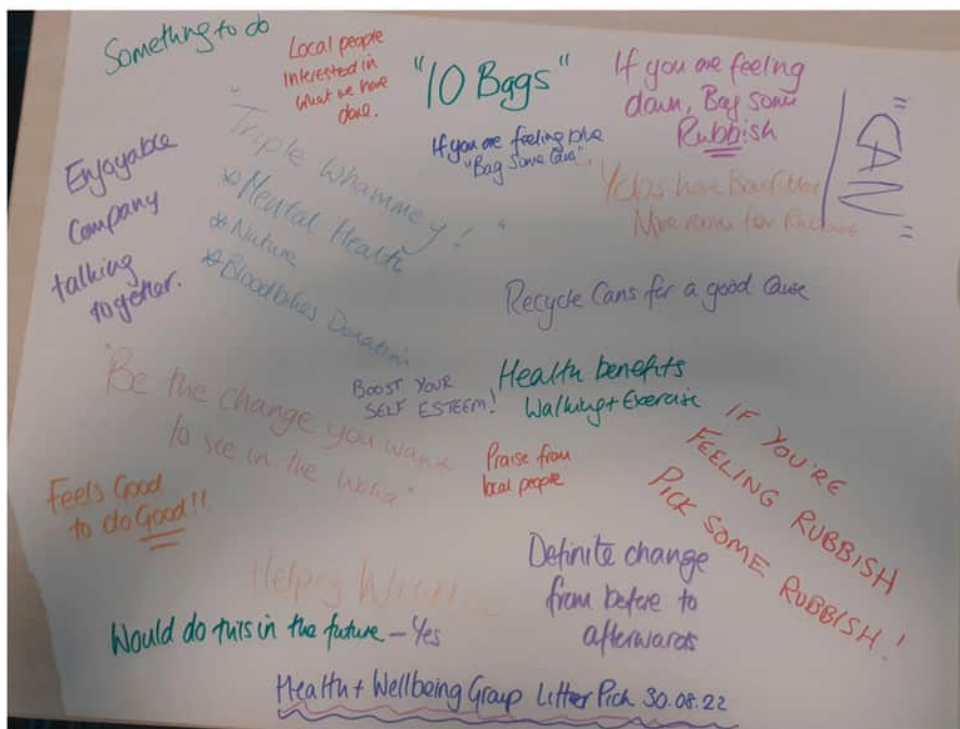 Something to do
Local people
interested in
what we have
done.
"10 Bags"
If you are feeling
down, Bag some
Rubbish
"CAN"
If you are feeling blue
"Bag Some Cans"
Enjoyable
Company
talking
together.
"Triple Whammey!"
Mental Health
Nature
Bloodbikes Donation
have
More now for
Recycle Cans for a good Cause
"Be the change you want
to see in the world"
BOOST YOUR
SELF ESTEEM!
Health benefits
Walking + Exercise
Praise from
local people
IF YOU'RE
FEELING RUBBISH
PICK SOME RUBBISH!
Feels Good
to do Good!!
Helping
Definite change
from before to
afterwards
Would do this in the future - Yes
Health + Wellbeing Group Litter Pick 30.08.22